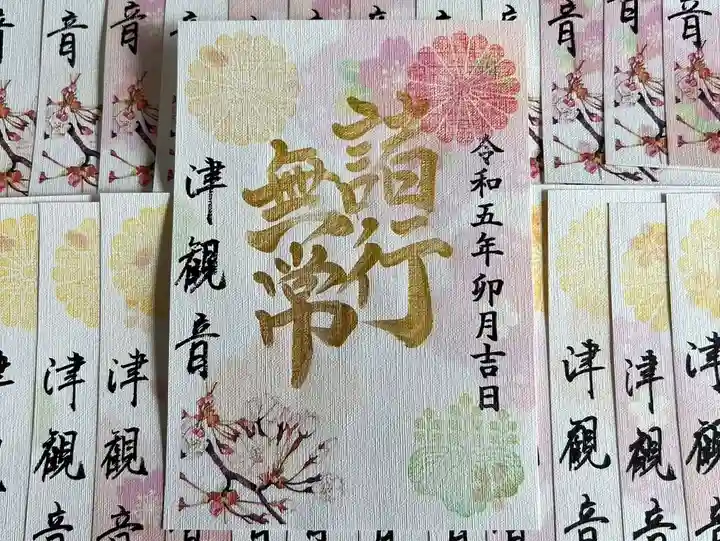 令和五年卯月吉日
諸行
無常
津観音
音
音
音
音
音
音
音
音
津観音
津観音
津観音
津観音
津観音